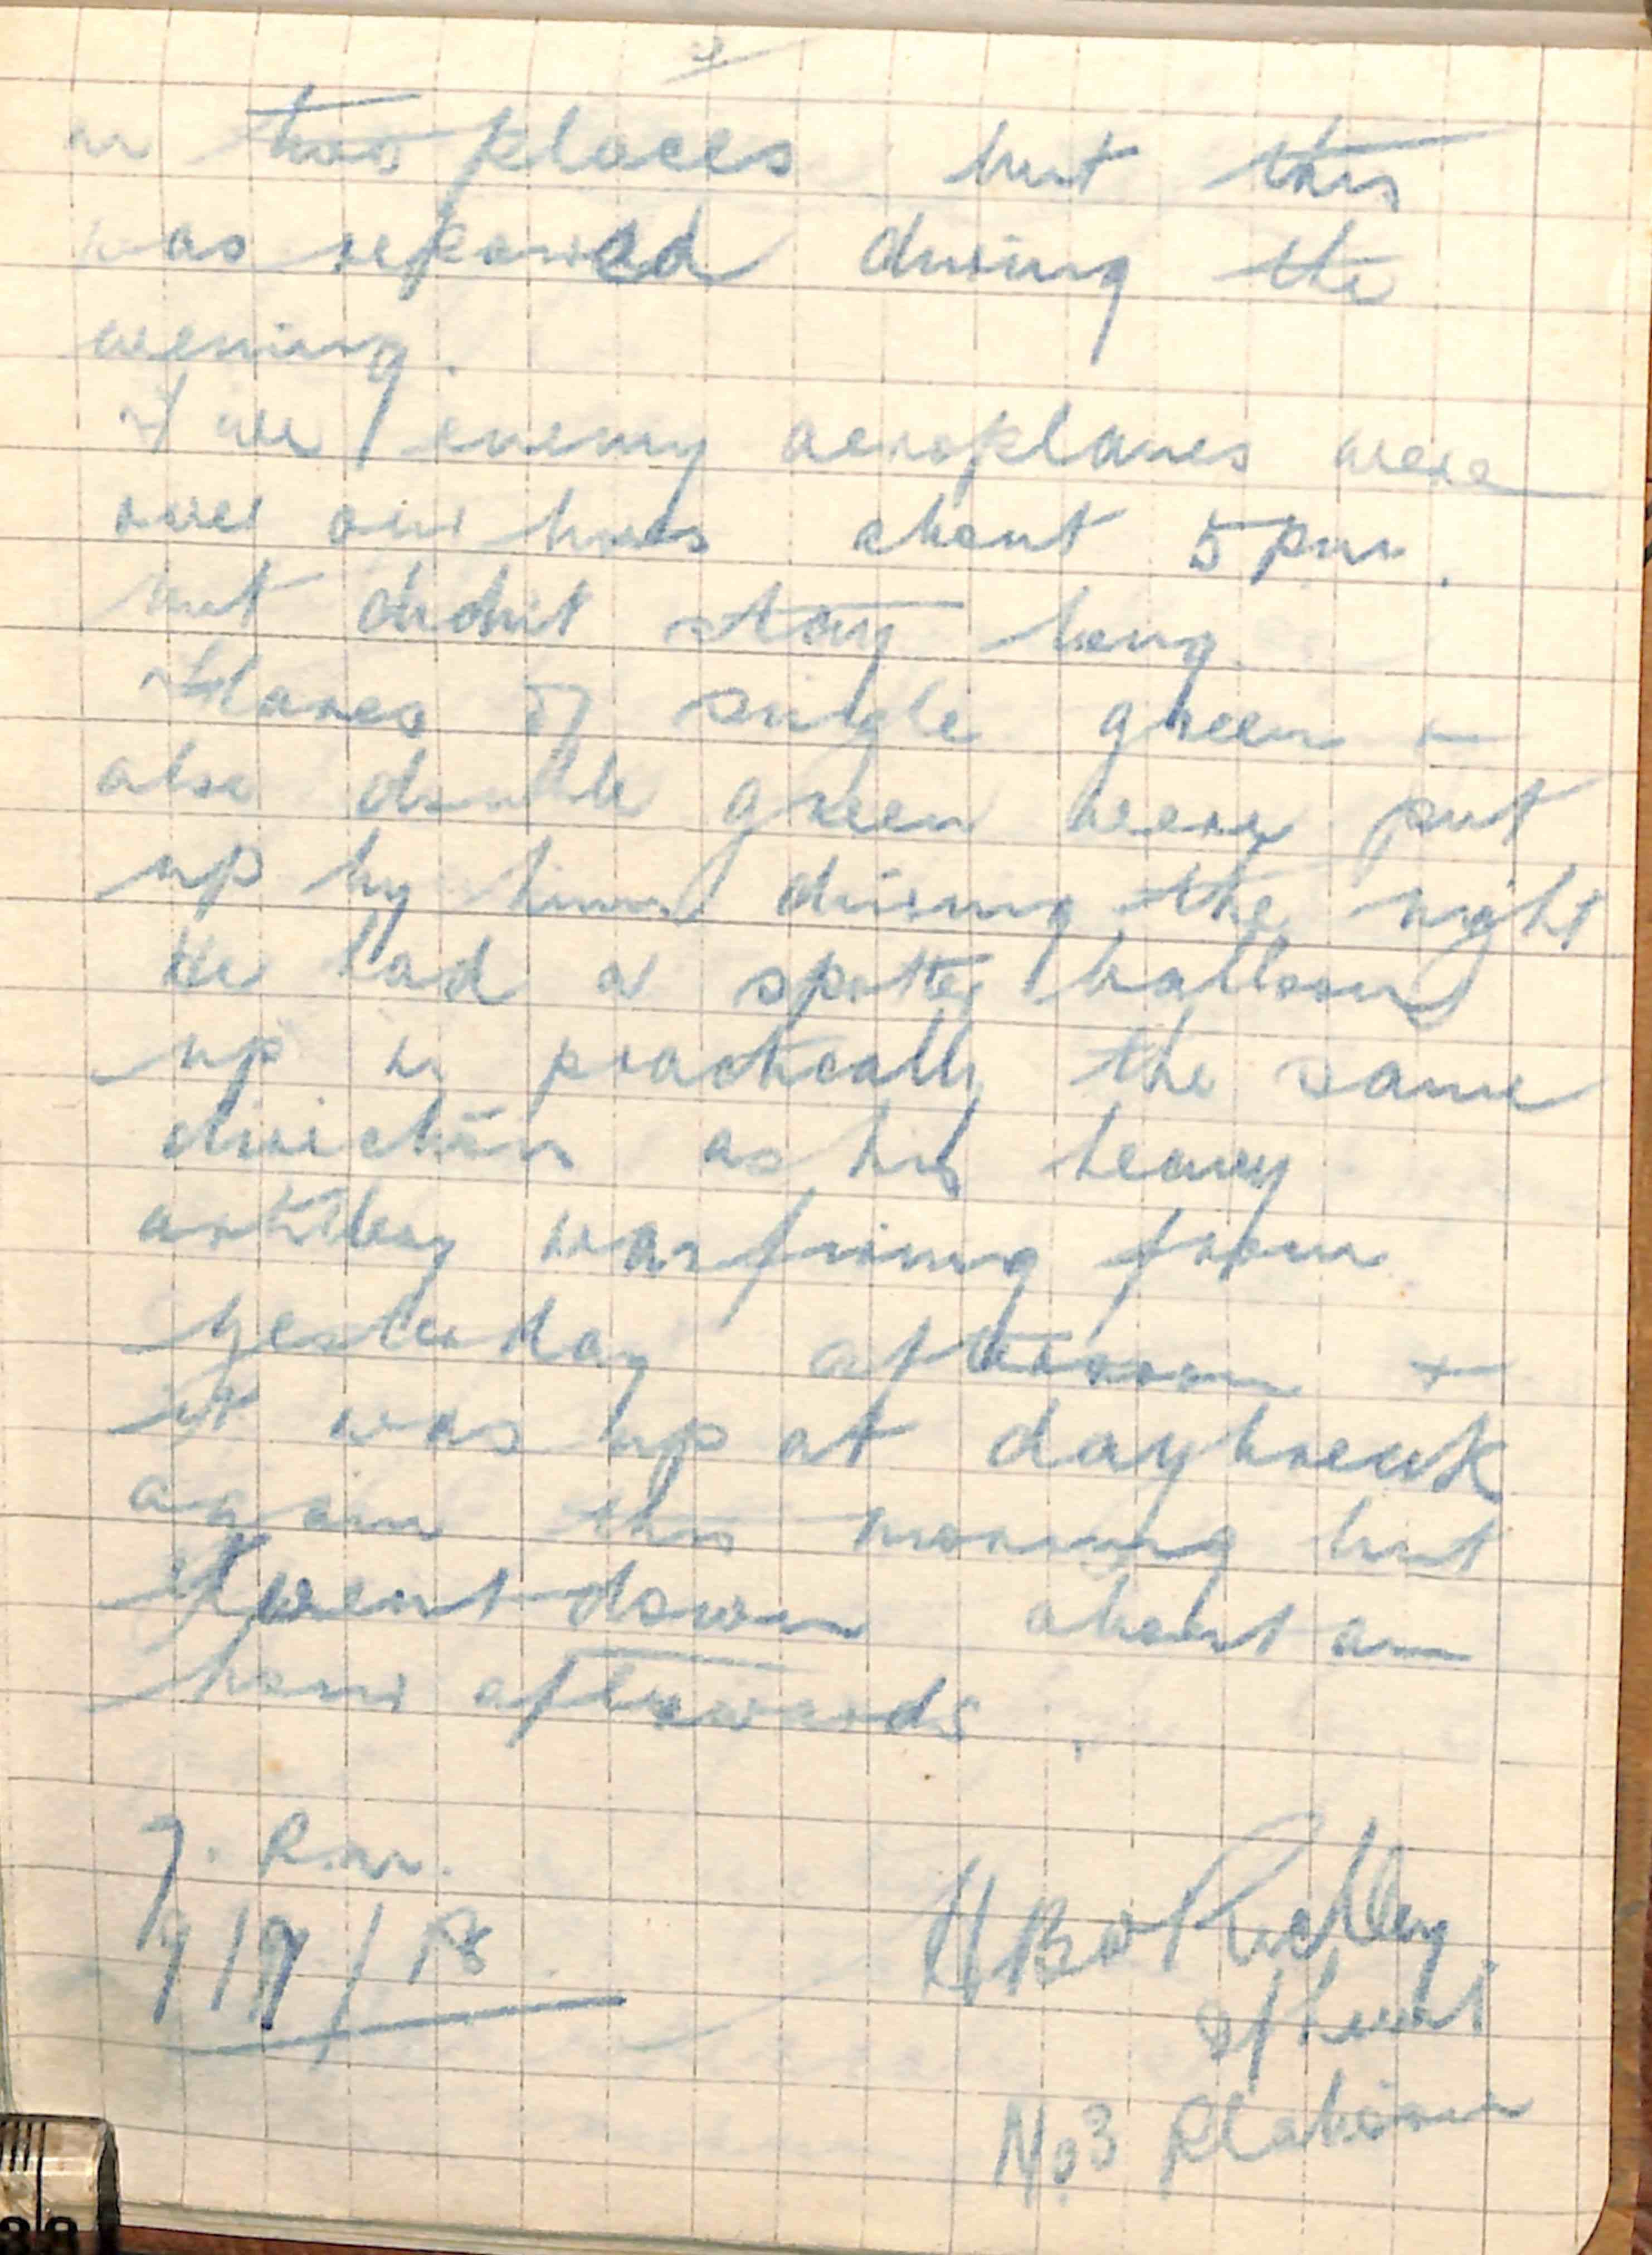 2
in two places but this
was repaired during the
evening.
enemy aeroplanes were
over our lines about 5 pm.
but didnt stay long.
Flares of single green &
also double green were put
up by him during the night
He had a spotter balloon
up in practically the same
direction as his heavy
artillery was firing from
yesterday afternoon &
it was up at daybreak
again this morning but
it went down about an
hour afterwards.
7. pm.
7/9/18
HBO Ridley
2/Lieut
No3 Platoon